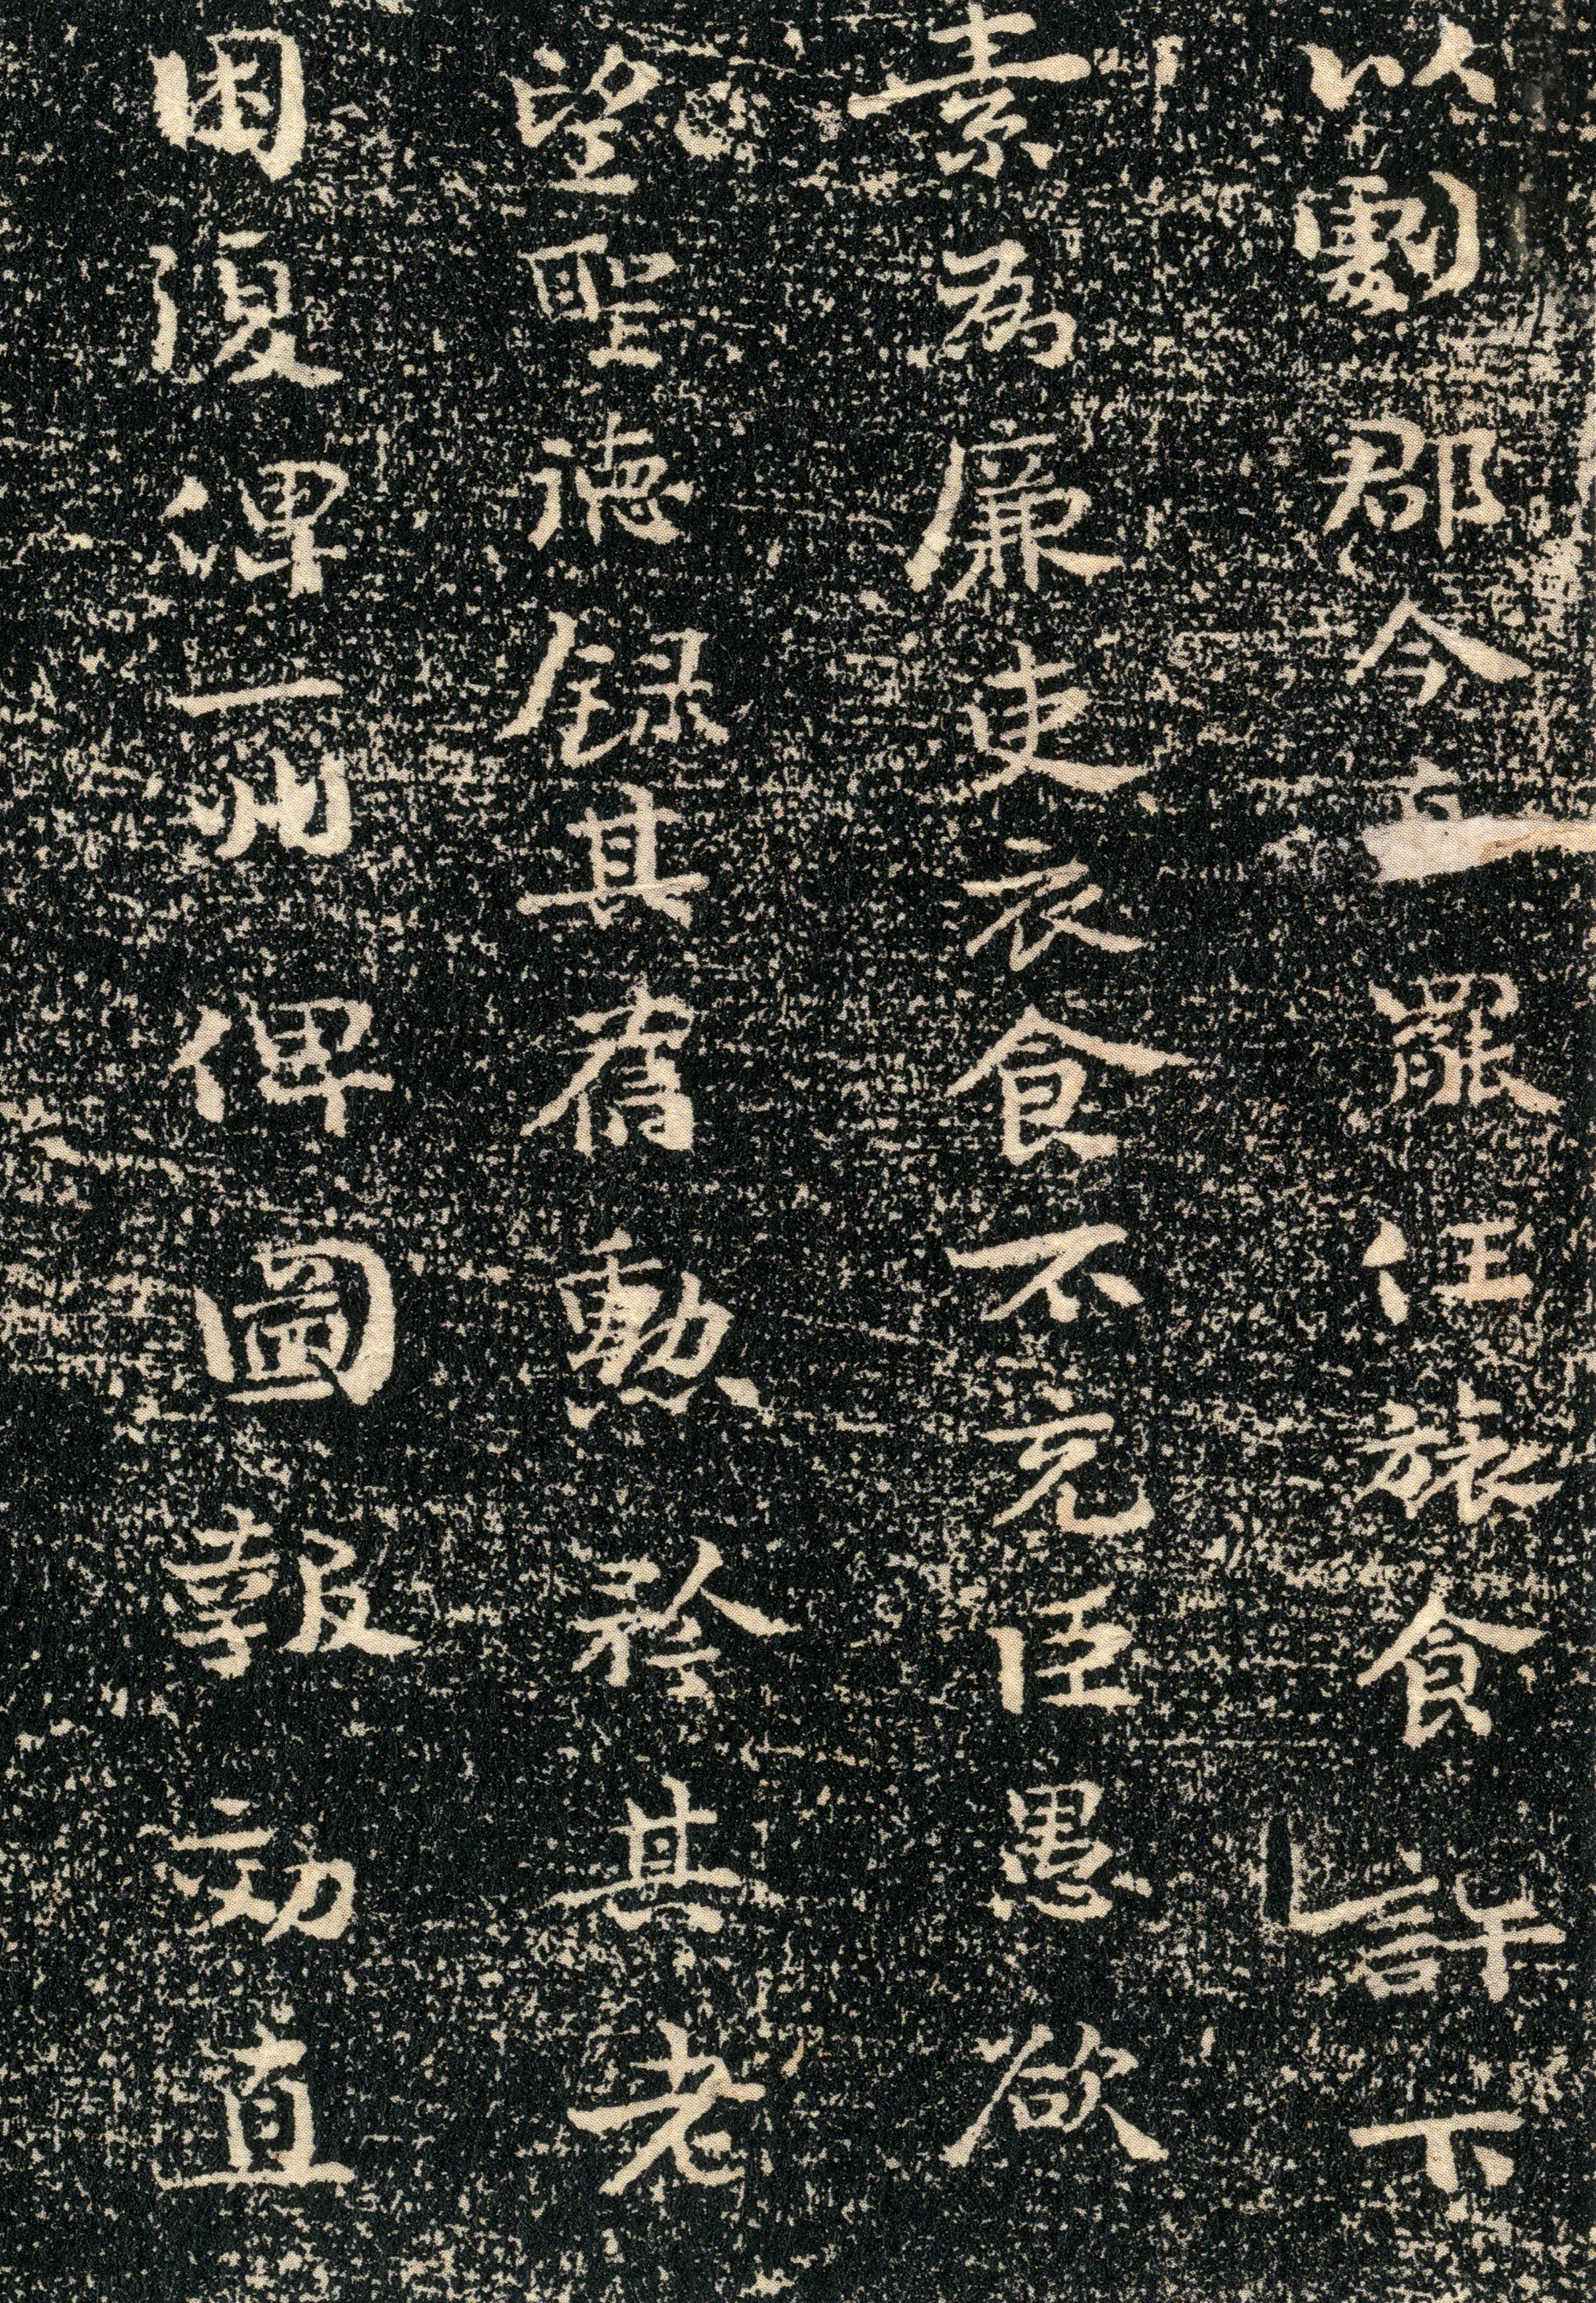 以劇郡今直罷任旅食許下
素為廉吏衣食不充臣愚欲
望聖德録其舊勳矜其老
困復俾一州俾圖報効直